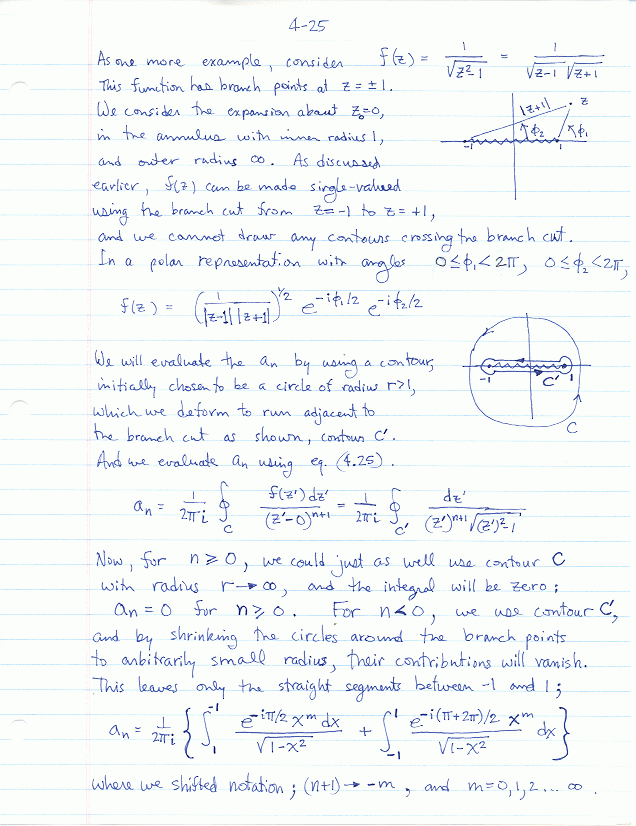 4-25
As one more example, consider f(z) = 1/√(z²-1) = 1/(√(z-1) √(z+1))
This function has branch points at z = ±1.
We consider the expansion about z₀=0,
in the annulus with inner radius 1,
and outer radius ∞. As discussed
earlier, f(z) can be made single-valued
using the branch cut from z=-1 to z=+1,
|z+1| z
ϕ₂ ϕ₁
-1 1
and we cannot draw any contours crossing the branch cut.
In a polar representation with angles 0≤ϕ₁<2π, 0≤ϕ₂<2π,
f(z) = (1/(|z-1||z+1|))^1/2 e^-iϕ₁/2 e^-iϕ₂/2
We will evaluate the an by using a contour,
initially chosen to be a circle of radius r>1,
which we deform to run adjacent to
the branch cut as shown, contour C'.
And we evaluate an using eq. (4.25).
-1 C' 1
C
an = 1/2πi ∮_C f(z')dz'/(z'-0)^n+1 = 1/2πi ∮_C' dz'/((z')^n+1 √((z')²-1))
Now, for n≥0, we could just as well use contour C
with radius r→∞, and the integral will be zero;
an = 0 for n≥0. For n<0, we use contour C',
and by shrinking the circles around the branch points
to arbitrarily small radius, their contributions will vanish.
This leaves only the straight segments between -1 and 1;
an = 1/2πi {∫_1^-1 e^-iπ/2 x^m dx/√(1-x²) + ∫_-1^1 e^-i(π+2π)/2 x^m/√(1-x²) dx}
where we shifted notation; (n+1)→-m, and m=0,1,2...∞.